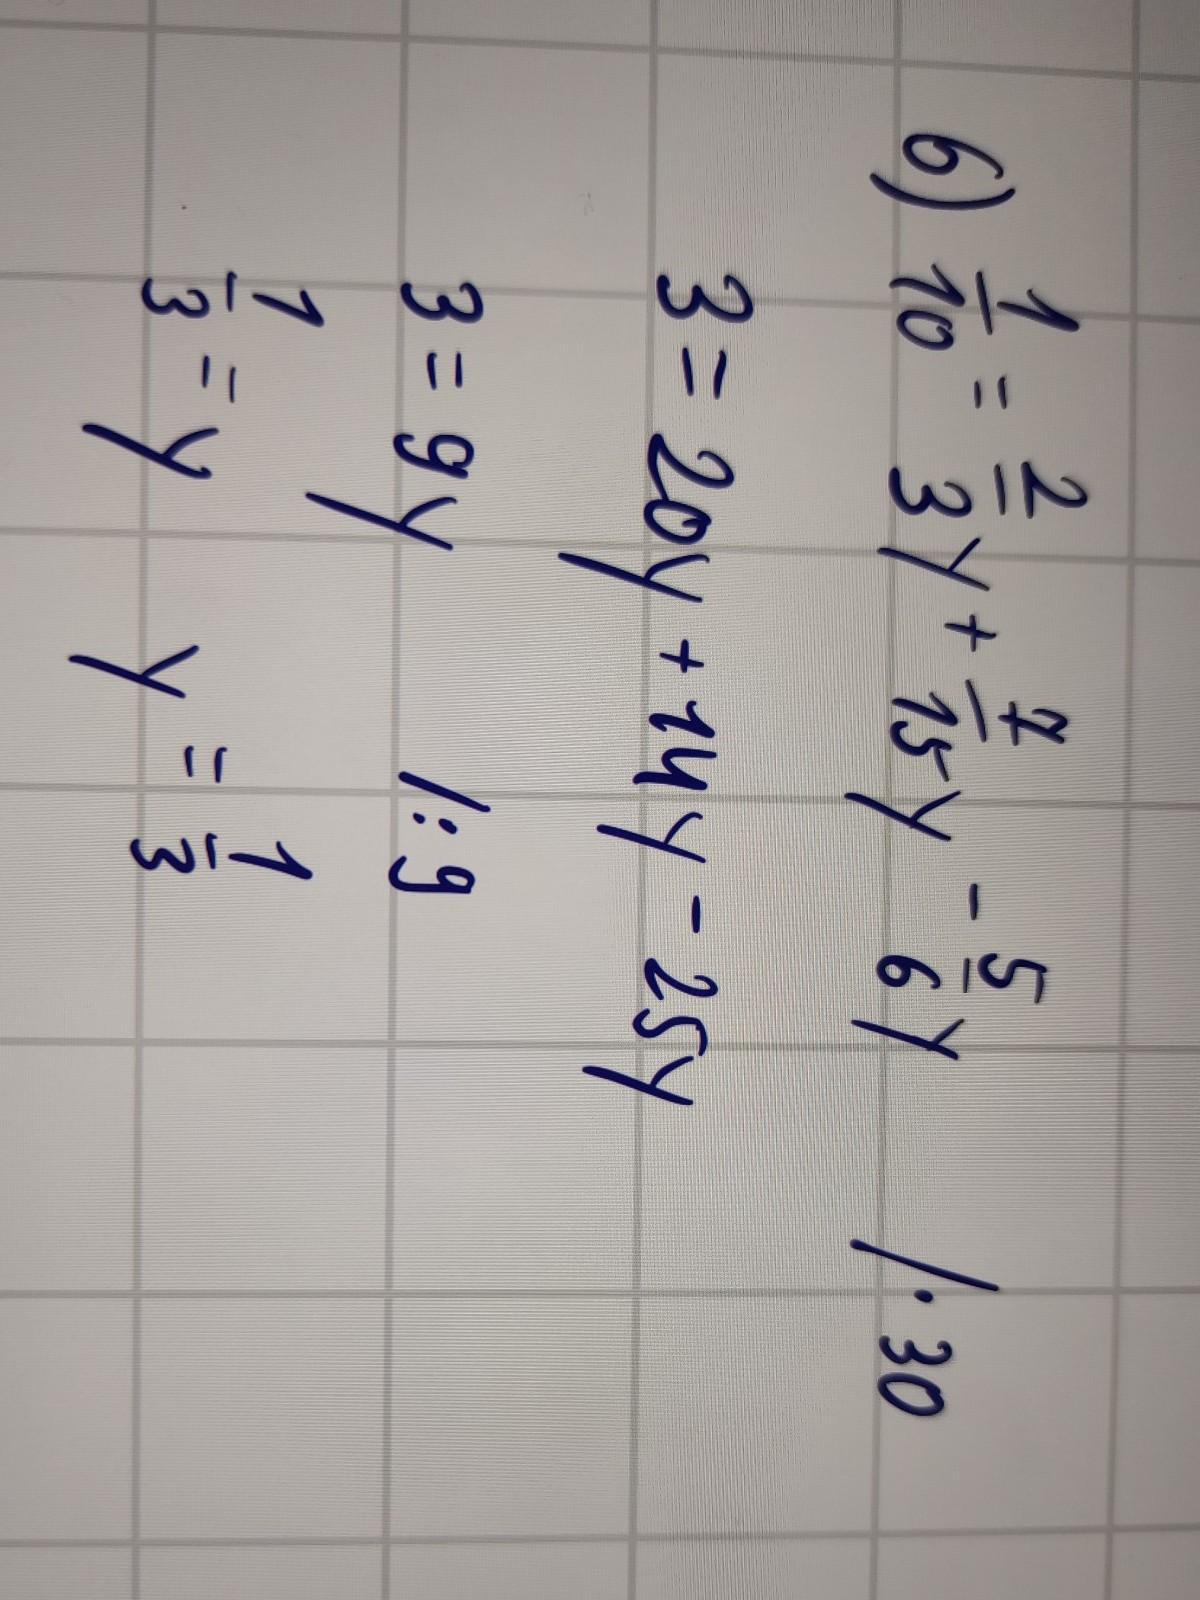 6) 1/10 = 2/3 y + 7/15 y - 5/6 y /·30
3 = 20y + 14y - 25y
3 = 9y /:9
1/3 = y y = 1/3